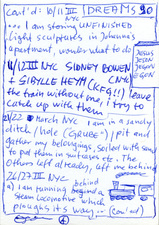 cont'd: 10/11 III DREAMS 90
NYC
... I am storing UNFINISHED
light sculptures in Johanna's
apartment, wonder what to do
JESUS
JEJSN
JASON
JEGON
11/12 III NYC SIDNEY BOWEN
+ SIBYLLE HEYM (KFG!!) leave
the train without me, i try to
catch up with them
21/22 March NYC i am in a sandy
ditch/hole (GRUBE=) pit and
gather my belongings, soiled with sand
to put them in suitcases etc. The
others left already, left me behind
26/27 III NYC
a) i am running behind
beyond a
Steam Locomotive which
ploughs its way... (con/and)